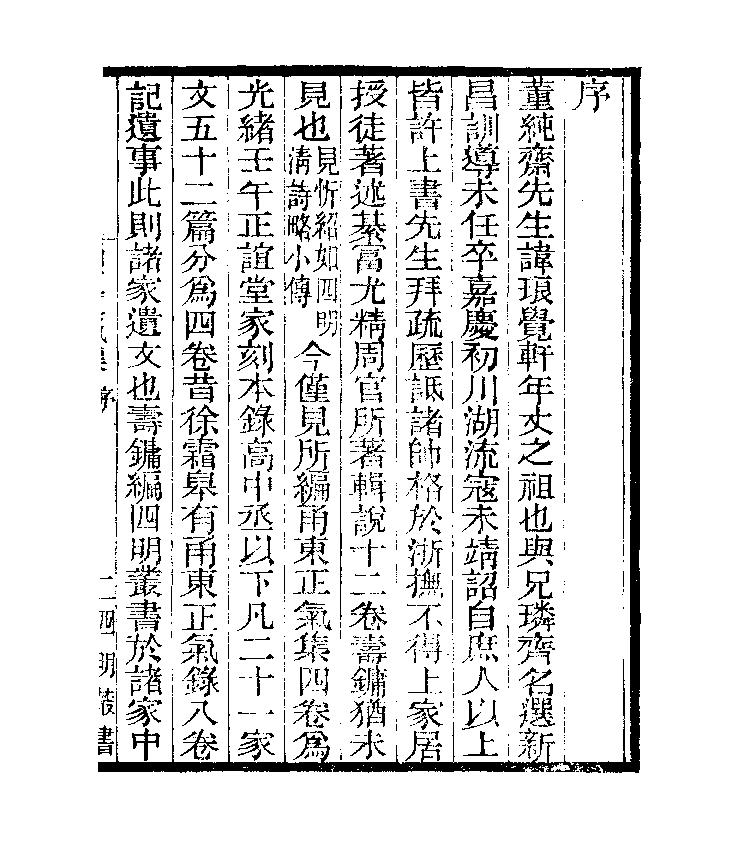 序
董純齋先生諱琅覺軒年丈之祖也與兄璘齋名選新
昌訓導未任卒嘉慶初川湖流寇未靖詔自庶人以上
皆許上書先生拜疏歷詆諸帥格於浙撫不得上家居
授徒著述綦富尤精周官所著輯說十二卷壽鏞猶未
見也見忻紹如四明
淸詩略小傳今僅見所編甬東正氣集四卷爲
光緒壬午正誼堂家刻本錄高中丞以下凡二十一家
文五十二篇分爲四卷昔徐霜皋有甬東正氣錄八卷
記遺事此則諸家遺文也壽鏞編四明叢書於諸家中
序
二四明叢書